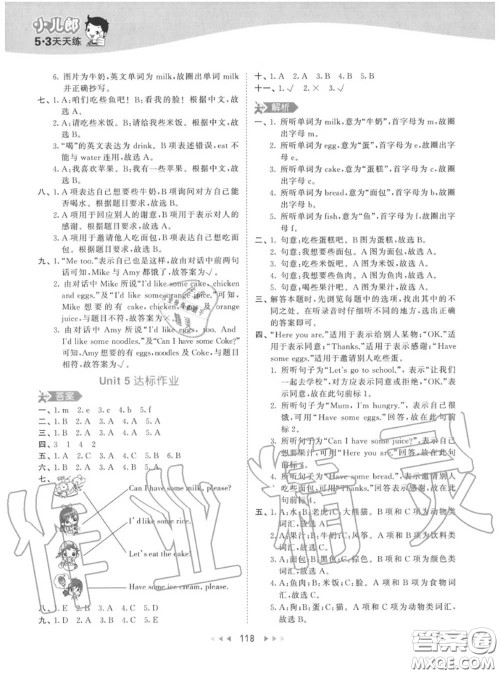 小儿郎
5·3天天练
6. 图片为牛奶,英文单词为 milk,故圈出单词 milk
并正确抄写。
七、1. A:咱们吃些鱼吧! B:看我的脸! 根据中文,故
选 A。
2. A:请吃些米饭。B:请给我些米饭。根据中文,
故选 A。
3. “喝”的英文表达为 drink, B 项表述错误, eat 不
能与 water 连用,故选 A。
4. A:我喜欢苹果。B:我有一些苹果。根据中文,故
选 A。
八、1. A 项表达自己想要些牛奶,B 项询问对方自己能
否喝水。根据题目要求,故选 A。
2. A 项用于回应别人的谢意,B 项用于表示对别人的
感谢。根据题目要求,故选 B。
3. A 项用于邀请他人吃面包,B 项表达自己想吃面
包。根据题目要求,故选 A。
九、1. “Me too.”表示自己也是这样,故由对话中前两句
话可知, Mike 与 Amy 都饿了,故答案为√。
2. 由对话中 Mike 所说“I'd like some cake, chicken
and eggs.”及“I'd like some orange juice.”可知,
Mike 想要的有 cake, chicken, eggs 及 orange
juice,与题目不符,故答案为×。
3. 由对话中 Amy 所说“I'd like eggs, too. And
I'd like some noodles.”及“Can I have some Coke?”
可知, Amy 想要的有 eggs, noodles 及 Coke,与题目
相符,故答案为√。
Unit 5 达标作业
答案
一、1. m 2. e 3. c 4. b 5. f
二、1. B 2. A 3. A 4. B 5. B
四、3 1 4 2
五、1. A 2. A 3. C 4. B 5. A
六、1. B 2. A 3. A 4. B 5. B
七、
Can I have some milk, please?
I'd like some rice.
Let's eat the cake.
Have some ice cream, please!
八、1. B 2. A 3. C 4. E 5. D
九、1. B 2. A 3. B 4. A 5. B
十、1. A 2. A 3. B 4. B
十一、1. √ 2. × 3. √
解析
一、1. 所听单词为 milk,意为“牛奶”,首字母为 m,故圈
出字母 m。
2. 所听单词为 egg,意为“蛋”,首字母为 e,故圈出
字母 e。
3. 所听单词为 cake,意为“蛋糕”,首字母为 c,故圈
出字母 c。
4. 所听单词为 bread,意为“面包”,首字母为 b,故圈
出字母 b。
5. 所听单词为 fish,意为“鱼”,首字母为 f,故圈出
字母 f。
二、1. 句意:吃些蛋糕吧。B 图为蛋糕。故选 B。
2. 句意:我想要些面包。A 图为面包,故选 A。
3. 句意:吃些米饭吧。A 图为米饭,故选 A。
4. 句意:我想要些鱼肉。B 图为鱼肉,故选 B。
5. 句意:我能吃些蛋吗? B 图为蛋,故选 B。
三、解答本题时,先浏览每题中的选项,找出其中的不
同之处。在听录音时仔细听不同的部分,选出正确
的答案即可。
四、“Here you are.”适用于表示给别人某物;“OK.”适
用于表示同意;“Thanks.”适用于表示感谢;“Have
some eggs.”适用于邀请别人吃些蛋。
1. 所听句子为“Let's go to school.”,表示“让我们
一起去学校”,对方应表示同意或拒绝,“OK.”表
示同意,故在此句前标 3。
2. 所听句子为“Mum, I'm hungry.”,表示自己很
饿,对方应用“Have some eggs.”回答,故在此句前
标 1。
3. 所听句子为“Can I have some juice?”,表示自己
想要果汁,可用“Here you are.”回答,故在此句
前标 4。
4. 所听句子为“Have some bread.”,表示邀请别人
吃些面包,应用“Thanks.”回答表示感谢,故在此
句前标 2。
五、1. A:水;B:老虎;C:大熊猫。B 项和 C 项为动物类
词汇,故选 A。
2. A:果汁;B:牛奶;C:风筝。A 项和 B 项为饮料类
词汇,故选 C。
3. A:面包;B:黑色;C:棕色。B 项和 C 项为颜色类
词汇,故选 A。
4. A:鱼肉;B:米饭;C:尺子。A 项和 B 项为食物词
汇,故选 C。
5. A:狗;B:蛋;C:鸭子。A 项和 C 项为动物类词汇,故
选 B。
118
作业精灵
答案圈
MXQE.COM